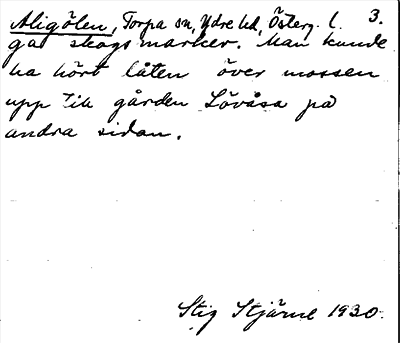 Aligölen, Torpa sn, Ydre hd, Österg. l. 3.
ga skogsmarker. Man kunde
ha hört låten över mossen
upp till gården Lövåsa på
andra sidan.
Stig Stjärne 1930.